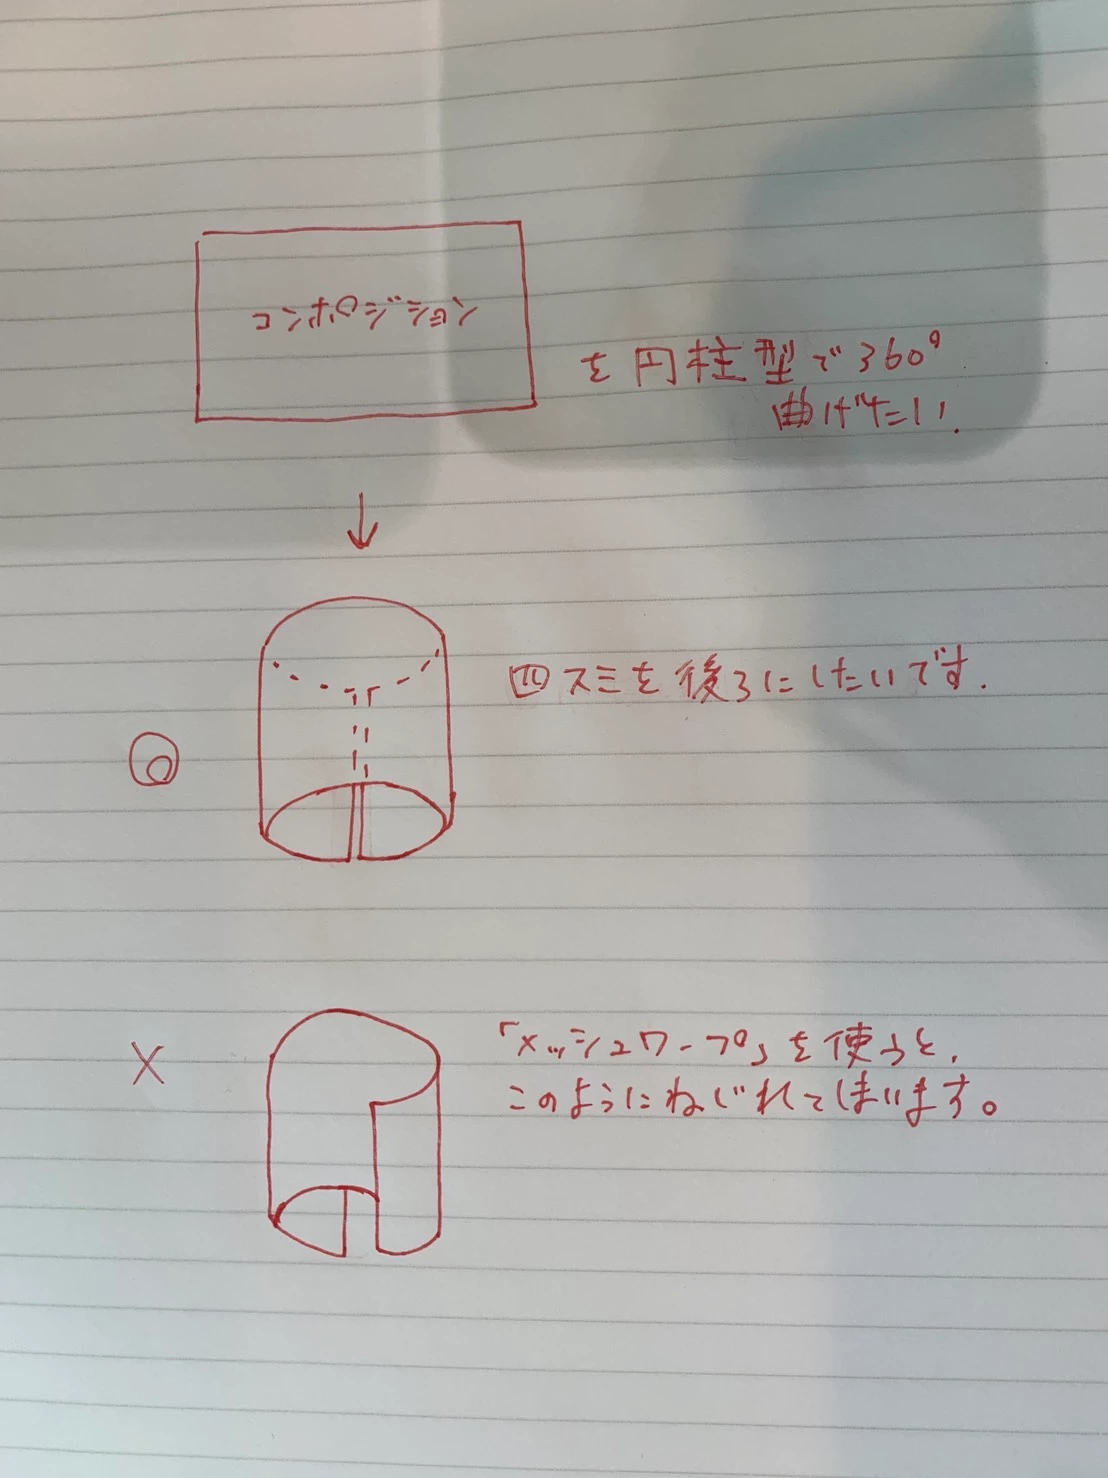 コンポジション
を円柱型で360°
曲げたい.
四スミを後ろにしたいです.
◎
×
「メッシュワープ」を使うと、
このようにねじれてしまいます。